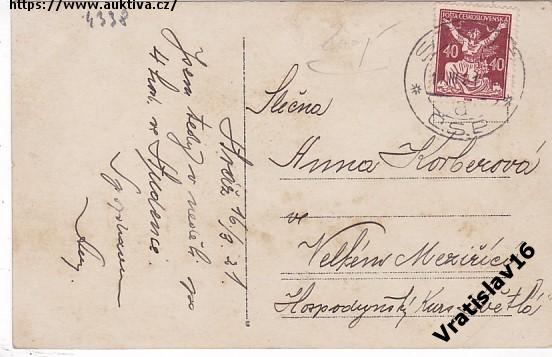 https://www.auktiva.cz/
4338
Stráž 16/3. 21.
Jsem tedy v neděli po
4 hod. ve Studenci.
S pozdravem
POŠTA ČESKOSLOVENSKÁ
40 40
Slečna
Anna Korberová
ve
Velkém Meziříčí
Hospodyňský Kurs Světlá
Vratislav16